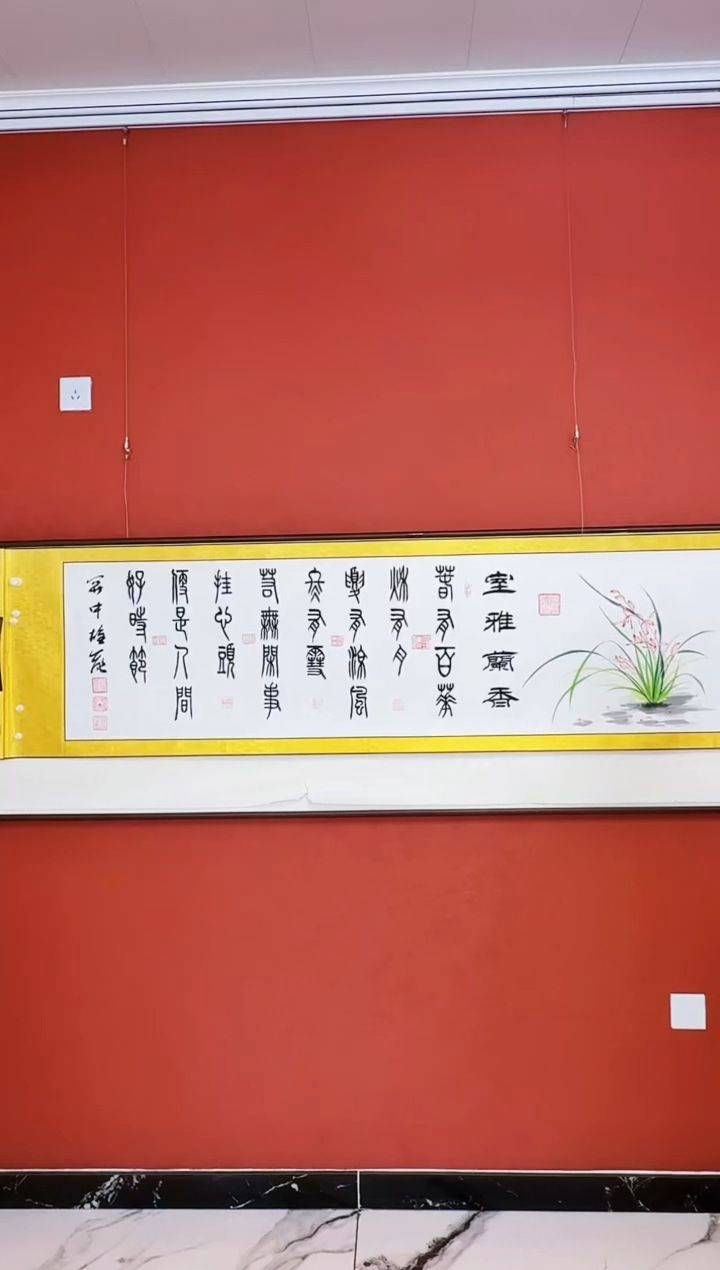 室雅蘭香
春有百華
秋有月
夏有涼風
冬有雪
若無閑事
挂心頭
便是人間
好時節